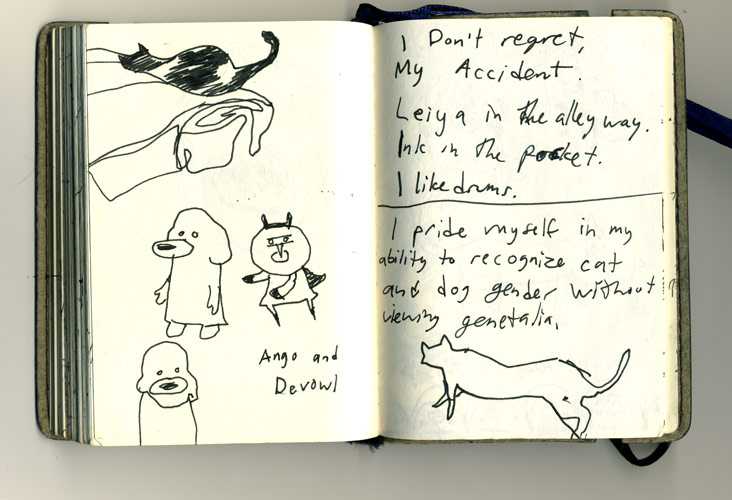 Ango and
Devowl
I Don't regret,
My Accident.
Leiya in the alley way.
Ink in the pocket.
I like drums.
I pride myself in my
ability to recognize cat
and dog gender without
viewing genetalia.